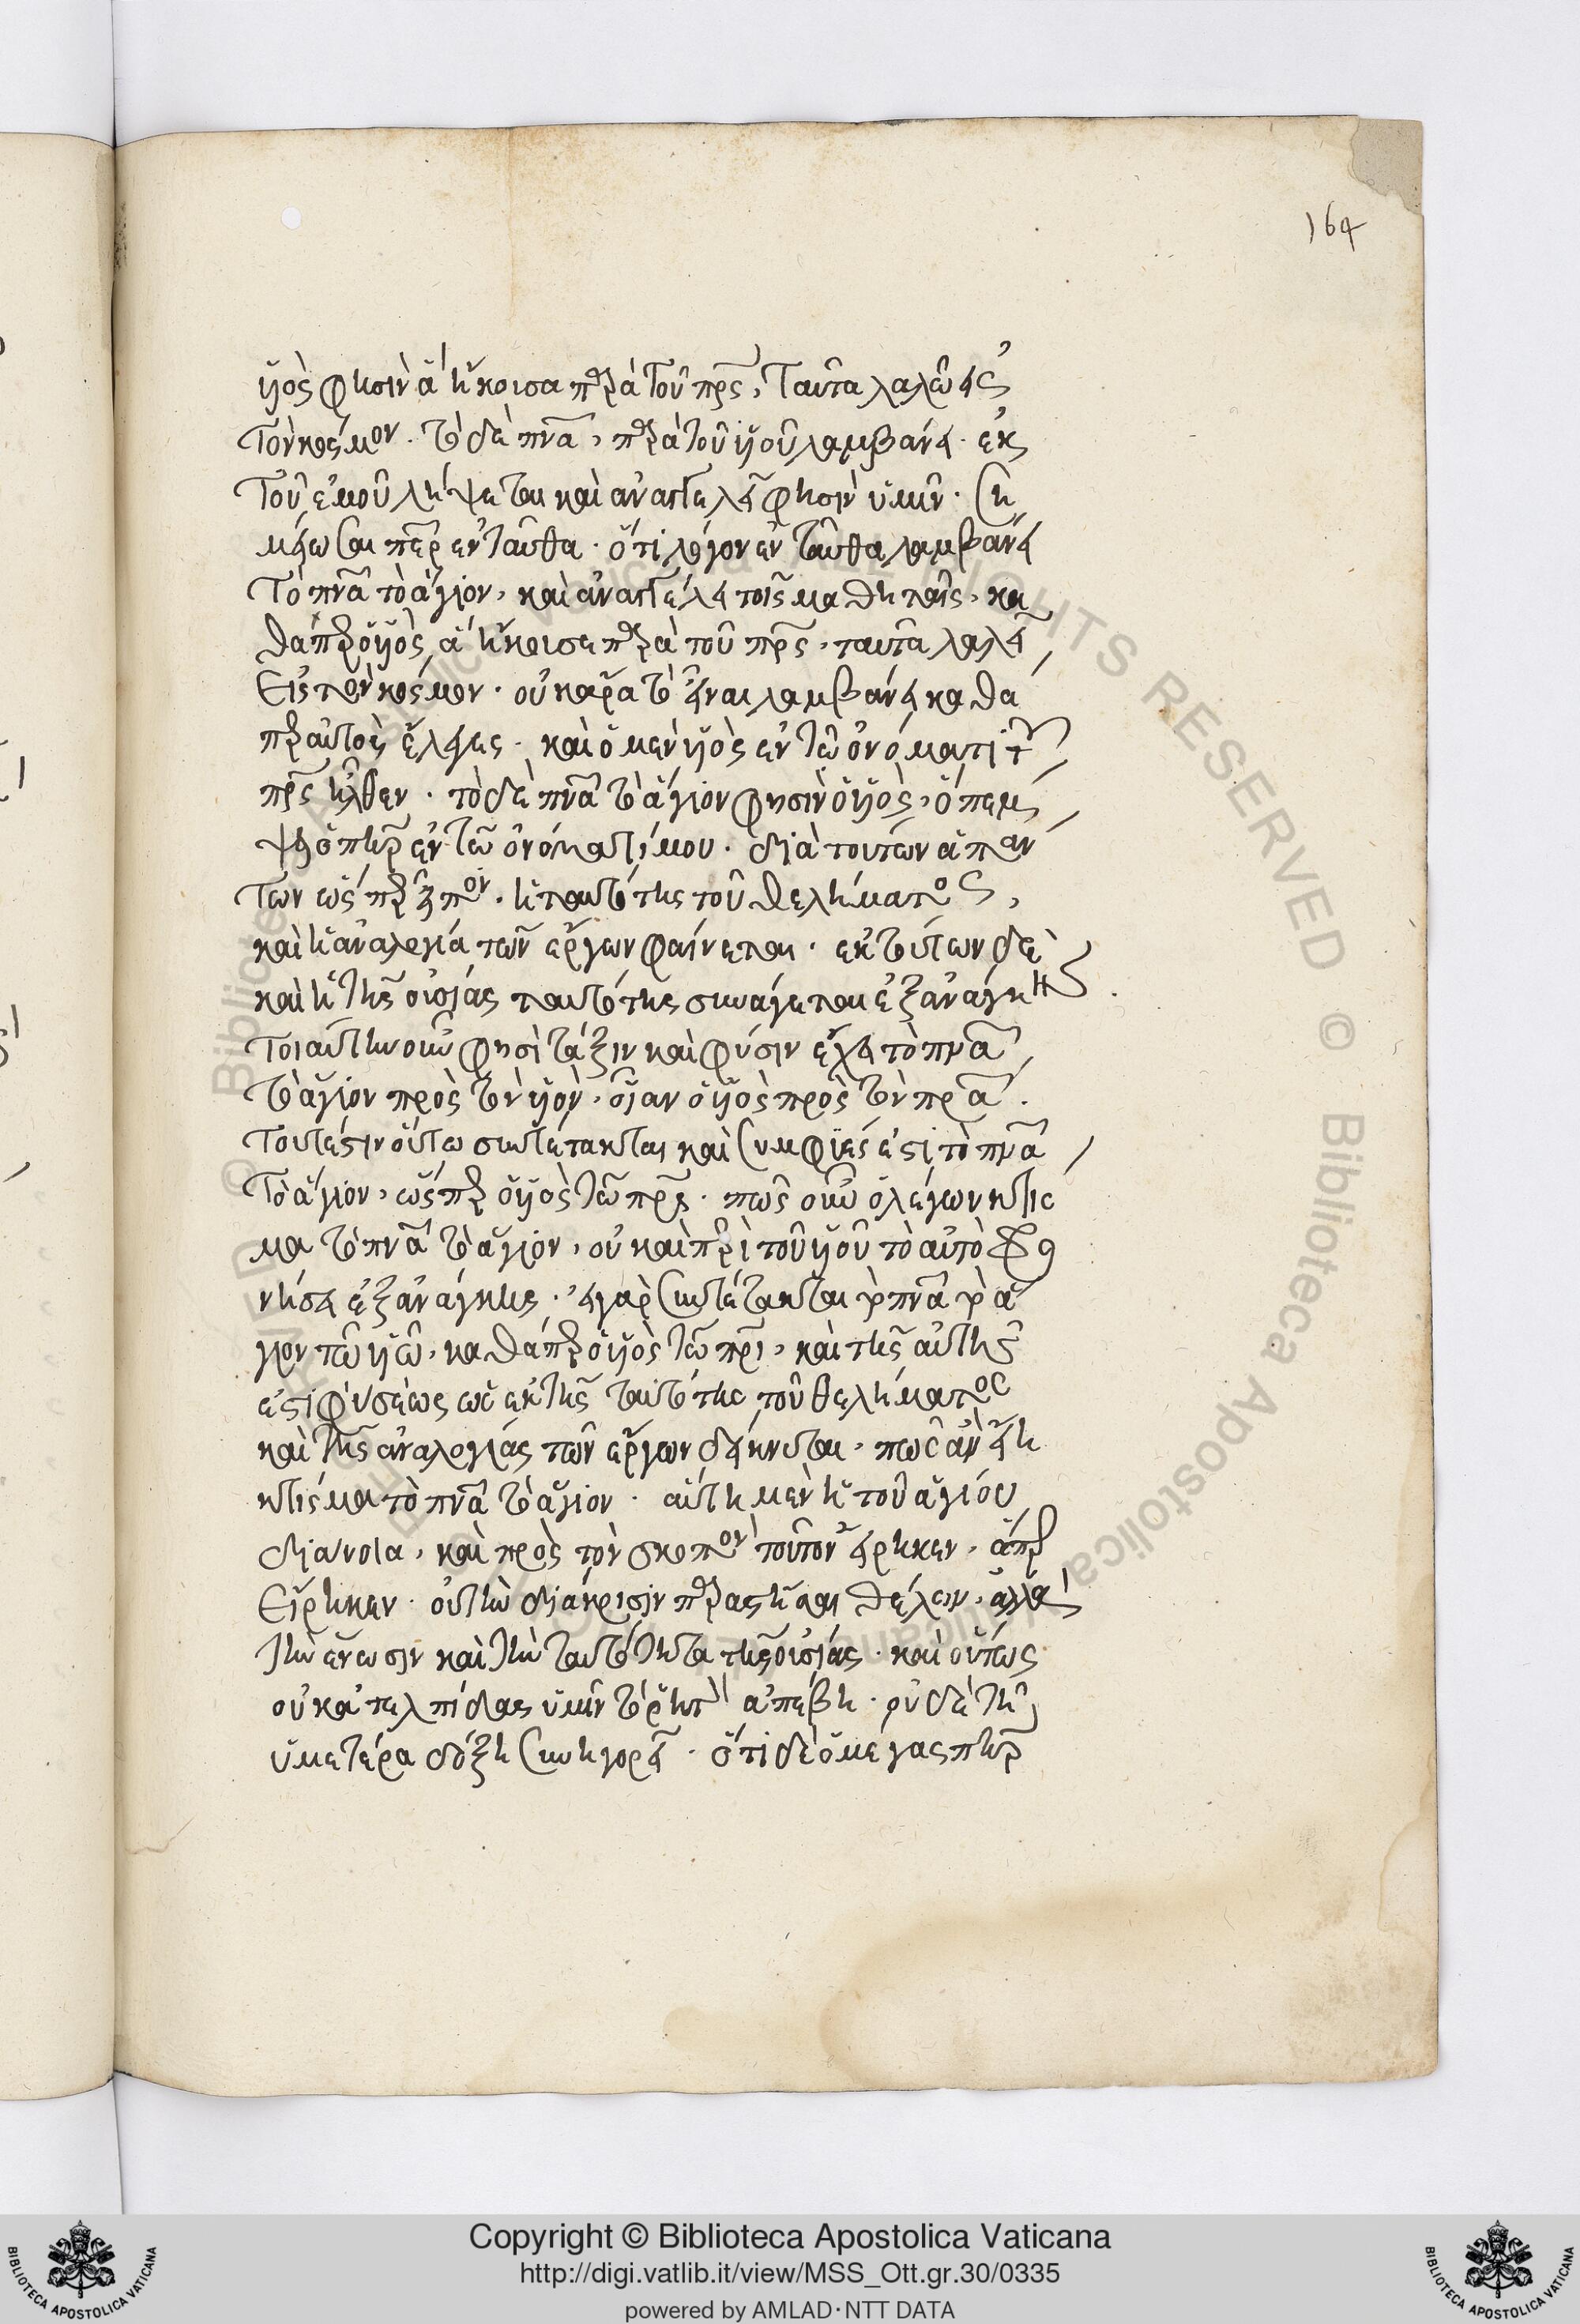 164
υἱὸς φησὶν ἃ ἤκουσα παρὰ τοῦ πρς, ταῦτα λαλῶ εἰς
τὸν κόσμον. τὸ δὲ πνα, παρὰ τοῦ υἱοῦ λαμβάνει. ἐκ
τοῦ ἐμοῦ λήψεται καὶ ἀναγγελεῖ φησὶν ὑμῖν. ση
μειωσαι περ ἐνταῦθα. ὅτι λόγον ἐνταῦθα λαμβάνει
τὸ πνα τὸ ἅγιον, καὶ ἀναγγέλει τοῖς μαθηταῖς, κα
θάπερ ὁ υἱὸς, ἃ ἤκουσε παρὰ τοῦ πρς, ταῦτα λαλεῖ
εἰς τὸν κόσμον. οὐκ ἄρα τὸ εἶναι λαμβάνει καθά
περ αὐτὸς ἔλεγες. καὶ ὁ μὲν υἱὸς ἐν τῶ ὀνόματι τοῦ
πρς ἦλθεν. τὸ δὲ πνα τὸ ἅγιον φησὶν ὁ υἱὸς, ὃ πέμ
ψει ὁ πηρ ἐν τῶ ὀνόματί μου. διὰ τούτων ἁπάν
των ὥσπερ εἶπον. ἡ ταυτότης τοῦ θελήματος,
καὶ ἡ ἀναλογία τῶν ἔργων φαίνεται. ἐκ τούτων δὲ
καὶ ἡ τῆς οὐσίας ταυτότης συνάγεται ἐξ ἀνάγκης.
τοιαύτην οὖν φησὶ τάξιν καὶ φύσιν ἔχει τὸ πνα
τὸ ἅγιον πρὸς τὸν υἱὸν, οἵαν ὁ υἱὸς πρὸς τὸν πρα.
τουτέστιν οὕτω συντέτακται καὶ συμφυές ἐστι τὸ πνα
τὸ ἅγιον, ὥσπερ ὁ υἱὸς τῶ πρς. πῶς οὖν ὁ λέγων κτίσ
μα τὸ πνα τὸ ἅγιον, οὐ καὶ περὶ τοῦ υἱοῦ τὸ αὐτὸ φρο
νήσει ἐξ ἀνάγκης. εἰ γὰρ συντέτακται τὸ πνα τὸ ἅ
γιον τῶ υἱῶ, καθάπερ ὁ υἱὸς τῶ πρι, καὶ τῆς αὐτῆς
ἐστι φύσεως ὡς ἐκ τῆς ταυτότης τοῦ θελήματος
καὶ τῆς ἀναλογίας τῶν ἔργων δείκνυται, πῶς ἂν εἴη
κτίσμα τὸ πνα τὸ ἅγιον. αὕτη μὲν ἡ τοῦ ἁγίου
διάνοια, καὶ πρὸς τὸν σκοπὸν τοῦτον εἴρηκεν, ἅπερ
εἴρηκεν. οὐ τὴν διάκρισιν παραστῆσαι θέλων, ἀλλὰ
τὴν ἕνωσιν καὶ τὴν ταυτότητα τῆς οὐσίας. καὶ οὕτως
οὐ κατ' ἐλπίδας ὑμῖν τὸ ῥητὸν ἀπέβη. οὐδὲ τῆ
ὑμετέρα δόξη συνηγορεῖ. ὅτι δὲ ὁ μέγας πηρ
Copyright © Biblioteca Apostolica Vaticana
http://digi.vatlib.it/view/MSS_Ott.gr.30/0335
powered by AMLAD·NTT DATA